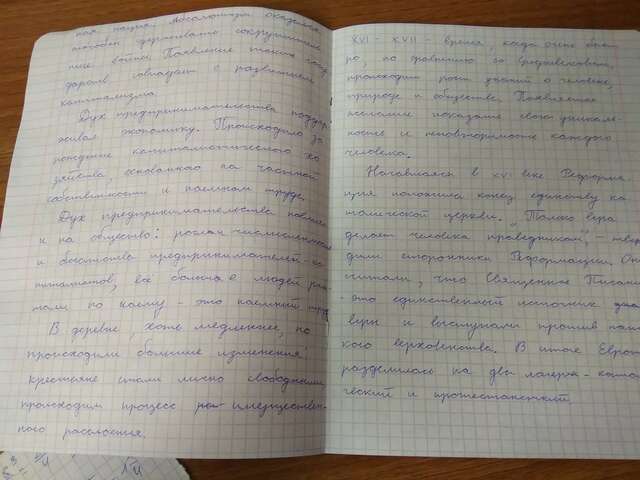 ная нация. Абсолютизм оказался
способен удерживать сокрушитель
ные войны. Появление таких госу
дарств совпадает с развитием
капитализма.
Дух предпринимательства поддер
живал экономику. Происходило за
рождение капиталистического хо
зяйства, основанного на частной
собственности и наёмном труде.
Дух предпринимательства повлиял
и на общество: росла численность
и богатство предпринимателей-ка
питалистов, всё больше людей раб
тали по найму - это наёмный труд
В деревне, хоть медленнее, но
происходили большие изменения
крестьяне стали лично свободными,
происходил процесс имуществен-
ного расслоения.
XVI - XVII - время, когда очень быст
ро, по сравнению со средневековьем,
происходит рост знаний о человеке,
природе и обществе. Появляется
желание показать свою уникаль
ность и неповторимость каждого
человека.
Начавшаяся в XVI веке Реформа
ция положила конец единству ка
толической церкви. "Только вера
делает человека праведником" - твер
дили сторонники Реформации. Они
считали, что Священное Писани
- это единственный источник
веры и выступали против папс
кого верховенства. В итоге Европа
разделилась на два лагеря - католи
ческий и протестантский.